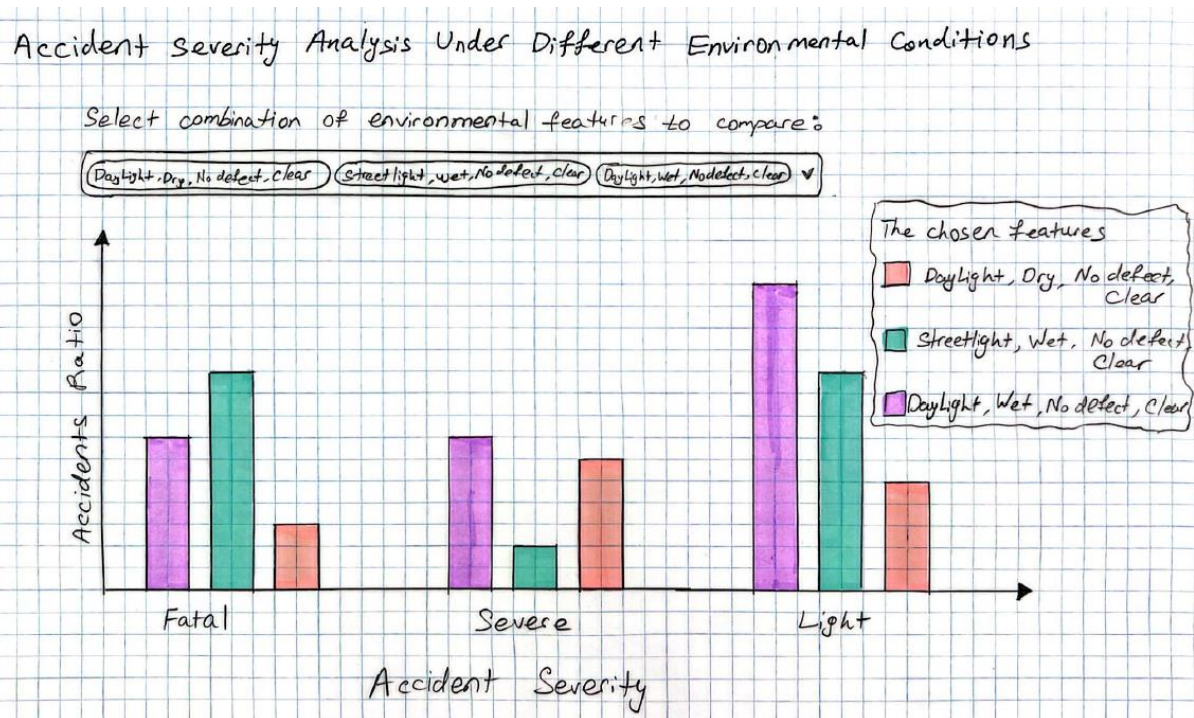 Accident Severity Analysis Under Different Environmental Conditions
Select combination of environmental features to compare:
DayLight, Dry, No defect, Clear
Streetlight, wet, No defect, Clear
DayLight, Wet, No defect, Clear
The chosen features
DayLight, Dry, No defect,
Clear
Streetlight, Wet, No defect,
Clear
DayLight, Wet, No defect, Clear
Accidents Ratio
Fatal
Severe
Light
Accident Severity